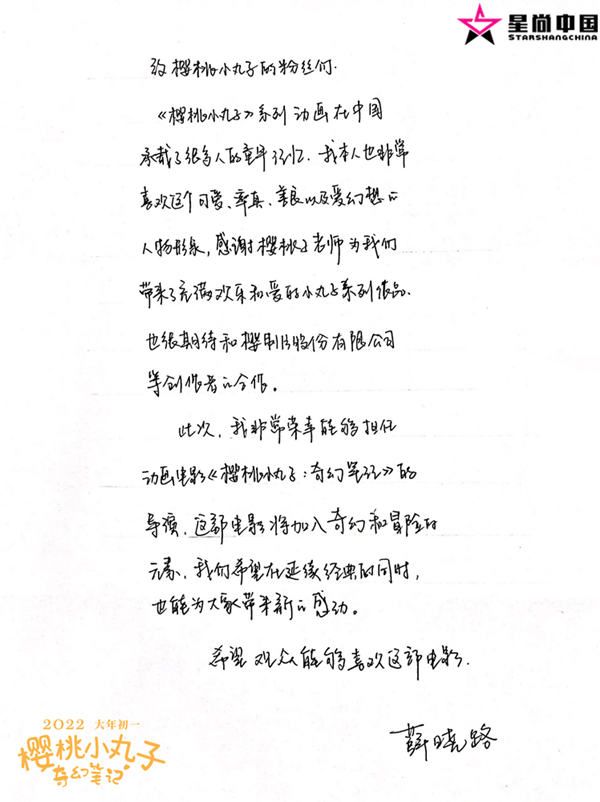 星尚中国
STARSHANGCHINA
致樱桃小丸子的粉丝们.
《樱桃小丸子》系列动画在中国
承载了很多人的童年记忆. 我本人也非常
喜欢这个可爱、率真、善良以及爱幻想的
人物形象, 感谢樱桃子老师为我们
带来了充满欢乐和爱的小丸子系列作品.
也很期待和樱制片股份有限公司
等创作者的合作。
此次, 我非常荣幸能够担任
动画电影《樱桃小丸子:奇幻笔记》的
导演, 这部电影将加入奇幻和冒险的
元素, 我们希望在延续经典的同时,
也能为大家带来新的感动。
希望观众能够喜欢这部电影.
薛晓路
2022 大年初一
樱桃小丸子
奇幻笔记